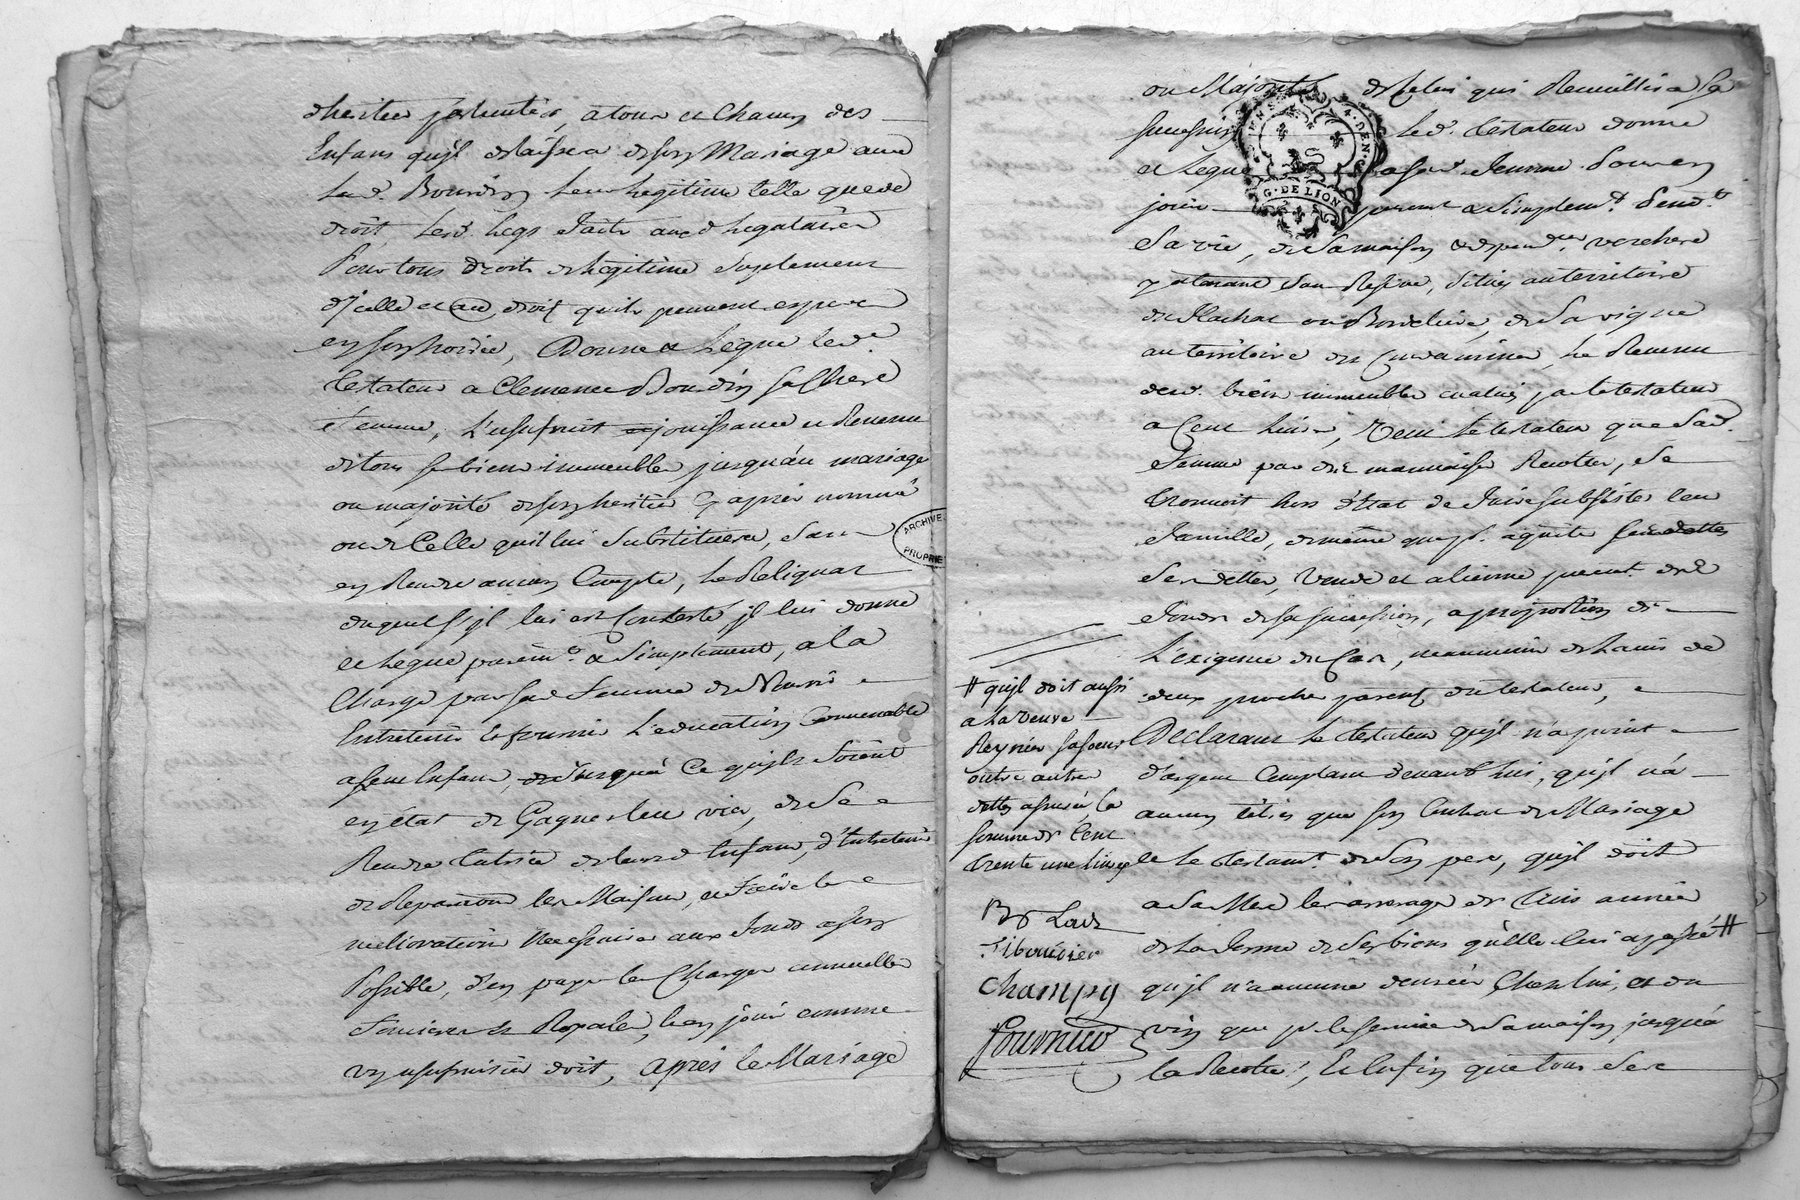 d'heritier a tous et Chacun des
Enfans qu'jl delaissera de son Mariage avec
lad. Bourdin leur legitime telle que de
droit, lesd. legs faits auxd legataires
Pour tous droits de legitime suplement
d'jcelle et au droit qu'ils peuvent esperer
en son hoirie, Donne & Legue led.
testateur a Clemence Bourdin sa Chere
femme, L'usufruit jouissance et Revenu
de tous ses biens immeubles jusqu'au mariage
ou majorité de son heritier Cy après nommé
ou de Celle qu'il lui Substituera, sans
en Rendre aucun Compte, Le Reliquat
duquel s'jl lui est Contesté jl lui donne
et Legue & Simplement, a la
Charge par sad femme de Nourrir
Entretenir et fournir L'education Convenable
a ses Enfans, jusqu'à Ce qu'jls Soient
en état de Gagner leur vie, de Se
Rendre tutrice de leursd Enfans, d'Entretenir
de Reparations les Maisons, et faire les
meliorations Necessaires aux fonds
Possible, d'en payer les Charges annuelles
foncieres & Royales, en jouir comme
un usufruitier doit, après le Mariage
ARCHIVE
PROPRIE
ou Majorité de Celui qui Recueillira Sa
succession led. testateur donne
et Legue a sad. femme Pour en
jouir & Simplemt. Pendt.
Sa vie, de Sa maison & dependces verchere
y attenant Sans Reserve, Situés au territoire
du de Sa vigne
au territoire de Le Revenu
desd. biens immeubles evalués par le testateur
a Cent Livres, Veut le testateur que Sad.
femme par de mauvaises Recoltes, Se
trouvoit hors d'état de faire Subsister leur
famille, de même qu'jl. aquiter
Ses dettes, Vende et alienne
fonds de sa succession, a proportion de
L'exigence du Cas, de Lavis de
deux proches parens du testateur,
Declarant le testateur qu'jl n'a point
d'argent Comptant devant lui, qu'jl n'a
aucuns titres que son Contrat de Mariage
et le testamt. de Son pere, qu'jl doit
a Sa Mere les arrerages de trois années
de La ferme de Ses biens qu'Elle lui a passé #
qu'jl n'a aucune denrées Ches lui, et du
vin que pr. le service de Sa maison jusqu'à
la Recolte, Et Enfin que tous Ses
4. DEN.
G. DE LION
# qu'jl doit aussi
a La veuve
Reynier sa soeur
outre autres
dettes la
somme de Cent
trente une livres
Champy
Fournier